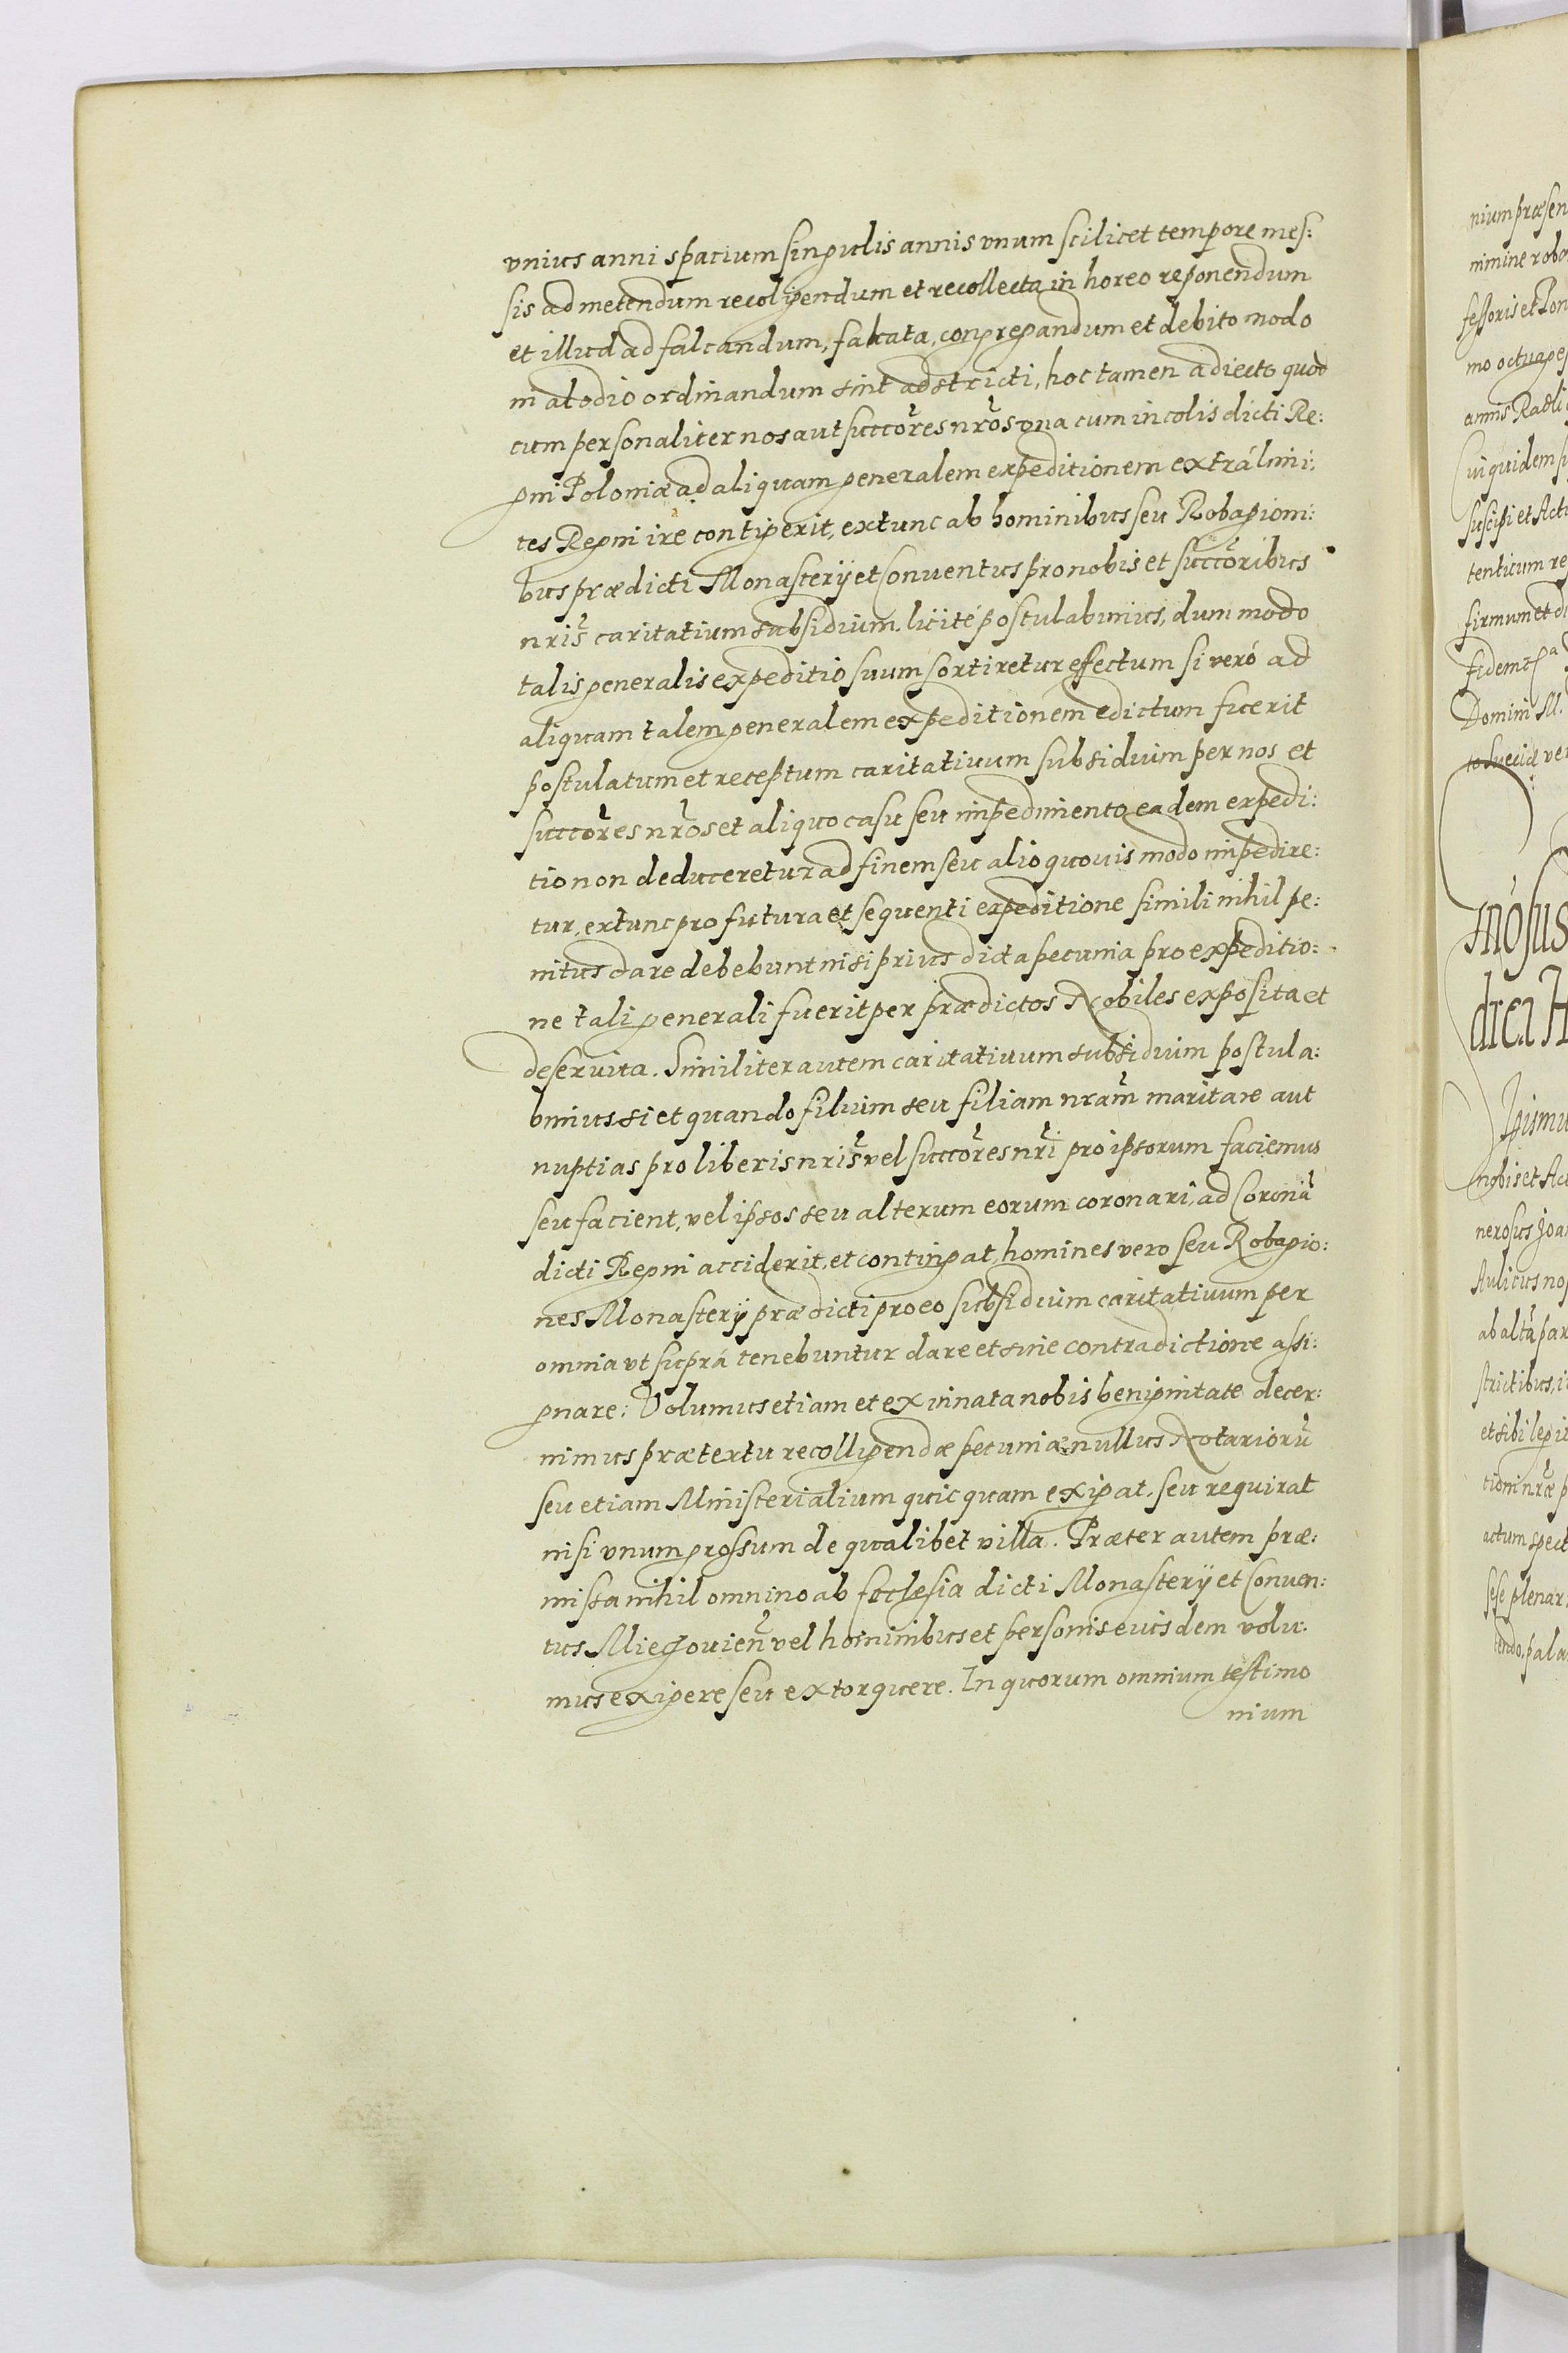 vnius anni spacium singulis annis vnum scilicet tempore mes:
sis ad metendum recoligendum et recollecta in horeo reponendum
et illud ad falcandum, falcata, congregandum et debito modo
in alodio ordinandum sint adstricti, hoc tamen adiecto quod
cum personaliter nos aut succores nros vna cum incolis dicti Re:
gni Poloniæ ad aliquam generalem expeditionem extrá limi:
tes Regni ire contigerit, extunc ab hominibus seu Robagioni:
bus prædicti Monasterÿ et Conuentus pro nobis et succoribus
nris caritatiuum subsidium licité postulabimus, dum modo
talis generalis expeditio suum sortiretur effectum si veró ad
aliquam talem generalem expeditionem edictum fuerit
postulatum et receptum caritatiuum subsidium per nos et
succores nros et aliquo casu seu impedimento eadem expedi:
tio non deduceretur ad finem seu alio quouis modo impedire:
tur, extunc pro futura et sequenti expeditione simili nihil pe:
nitus dare debebunt nisi prius dicta pecunia pro expeditio:
ne tali generali fuerit per prædictos Nobiles exposita et
deseruita. Similiter autem caritatiuum subsidium postula:
bimus si et quando filium seu filiam nram maritare aut
nuptias pro liberis nris vel succores nri pro ipsorum faciemus
seu facient, vel ipsos seu alterum eorum coronari, ad Coronā
dicti Regni acciderit, et contingat, homines vero seu Robagio:
nes Monasterÿ prædicti pro eo subsidium caritatiuum per
omnia vt suprá tenebuntur dare et sine contradictione assi:
gnare: Volumus etiam et ex innata nobis benignitate decer:
nimus prætextu recolligendæ pecuniæ nullus Notariorū
seu etiam Ministerialium quicquam exigat, seu requirat
nisi vnum grossum de qualibet villa. Præter autem præ:
missa nihil omnino ab Ecclesia dicti Monasterÿ et Conuen:
tus Miechouien vel hominibus et personis euisdem volu:
mus exigere seu extorquere. In quorum omnium testimo
nium
nium præsen
mo octuage
annis
suscipi et Act
tenticum re
firmum et d
Domini M.
dici H
nobis et Act
nerosus Joan
Aulicus no
strictibus, i
et sibi legit
actum spect
sese plenar